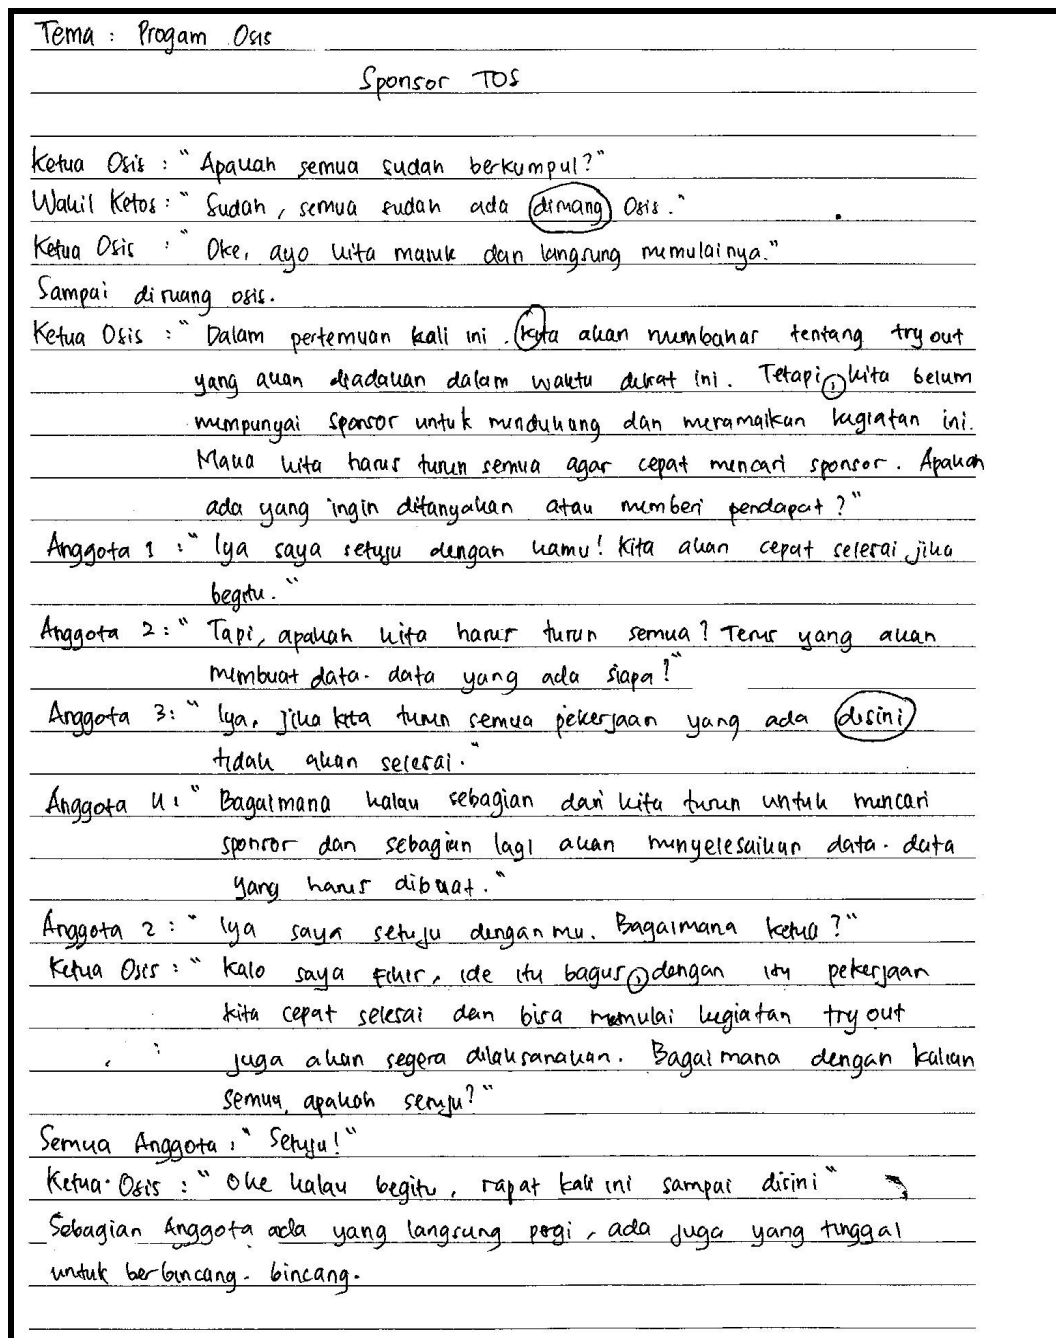 Tema : Progam Osis
Sponsor TOS
Ketua Osis : "Apakah semua sudah berkumpul?"
Wakil Ketos : "Sudah, semua sudah ada diruang Osis."
Ketua Osis : "Oke, ayo kita masuk dan langsung memulainya."
Sampai diruang osis.
Ketua Osis : "Dalam pertemuan kali ini . kita akan membahas tentang try out
yang akan diadakan dalam waktu dekat ini. Tetapi, kita belum
mempunyai sponsor untuk mendukung dan meramaikan kegiatan ini.
Maka kita harus turun semua agar cepat mencari sponsor. Apakah
ada yang ingin ditanyakan atau memberi pendapat?"
Anggota 1 : "Iya saya setuju dengan kamu! Kita akan cepat selesai jika
begitu."
Anggota 2 : "Tapi, apakah kita harus turun semua? Terus yang akan
membuat data-data yang ada siapa?"
Anggota 3 : "Iya, jika kita turun semua pekerjaan yang ada disini
tidak akan selesai."
Anggota 4 : "Bagaimana kalau sebagian dari kita turun untuk mencari
sponsor dan sebagian lagi akan menyelesaikan data-data
yang harus dibuat."
Anggota 2 : "Iya saya setuju denganmu. Bagaimana ketua?"
Ketua Osis : "Kalo saya fikir, ide itu bagus, dengan itu pekerjaan
kita cepat selesai dan bisa memulai kegiatan try out
juga akan segera dilaksanakan. Bagaimana dengan kalian
semua, apakah setuju?"
Semua Anggota : "Setuju!"
Ketua Osis : "Oke kalau begitu, rapat kali ini sampai disini"
Sebagian Anggota ada yang langsung pergi, ada juga yang tinggal
untuk berbincang-bincang.